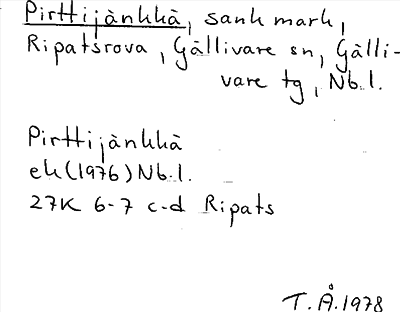 Pirttijänkkä, sank mark,
Ripatsrova, Gällivare sn, Gälli-
vare tg, Nb.l.
Pirttijänkkä
ek (1976) Nb.l.
27K 6-7 c-d Ripats
T.Å. 1978